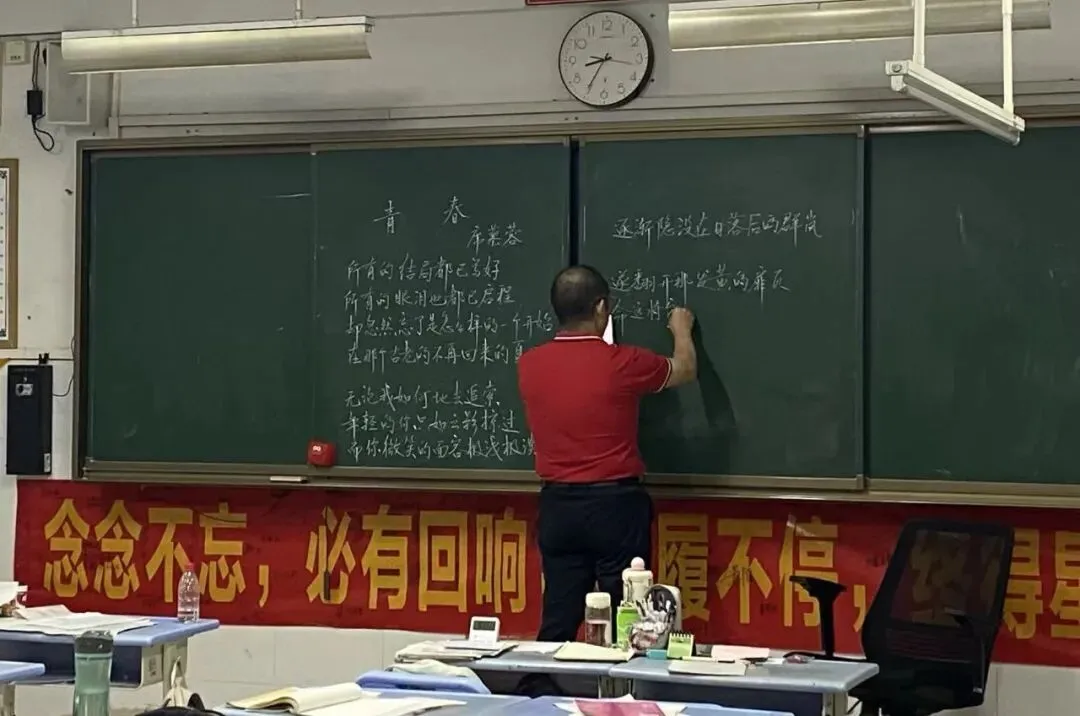 青 春
席慕蓉
所有的结局都已写好
所有的眼泪也都已启程
却忽然忘了是怎么样的一个开始
在那个古老的不再回来的夏
无论我如何地去追索
年轻的你只如云影掠过
而你微笑的面容极浅极淡
逐渐隐没在日落后的群岚
遂翻开那发黄的扉页
命运将
念念不忘，必有回响 履不停， 得星